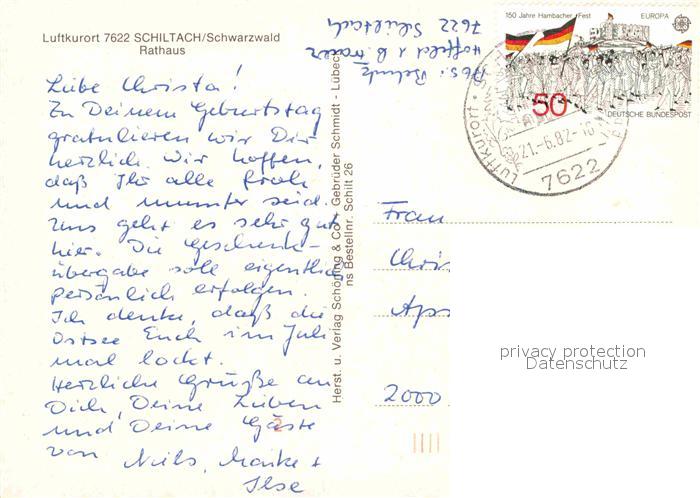 Luftkurort 7622 SCHILTACH/Schwarzwald
Rathaus
Liebe Christa!
Zu Deinem Geburtstag
gratulieren wir Dir
herzlich. Wir hoffen,
daß Ihr alle froh
und munter seid.
Uns geht es sehr gut
hier. Die Geschenk-
übergabe soll eigentlich
persönlich erfolgen.
Ich denke, daß die
Ostsee Euch im Juli
mal lockt.
Herzliche Grüße an
Dich, Deine Lieben
und Deine Gäste
von Nils, Maike +
Ilse
Herst. u. Verlag Schöning & Co + Gebrüder Schmidt - Lübeck
ns Bestellnr. Schilt 26
Abs.:
7622 Schiltach
150 Jahre Hambacher Fest EUROPA
50
DEUTSCHE BUNDESPOST
Luftkurort
21.-6.82-16
7622
Frau
Chri
Aps
2000
privacy protection
Datenschutz